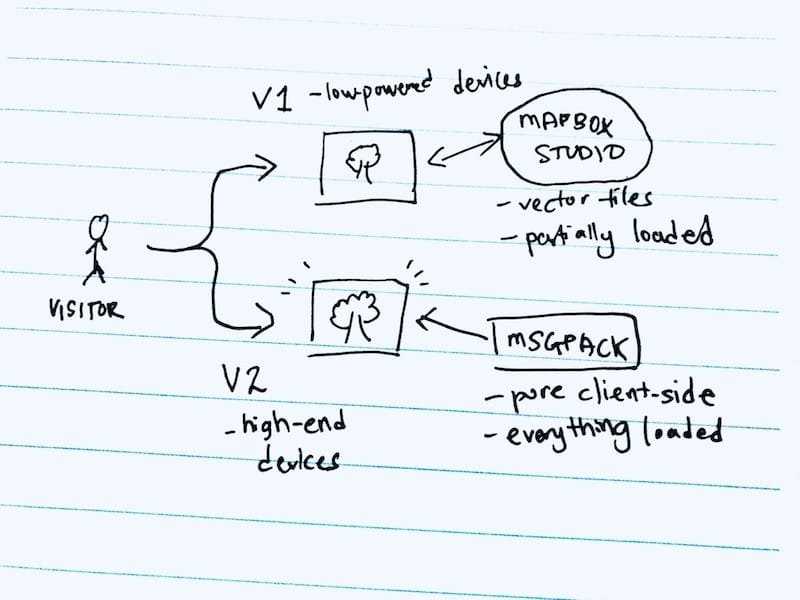 V1 - low-powered devices
MAPBOX
STUDIO
- vector tiles
- partially loaded
VISITOR
V2
- high-end
devices
MSGPACK
- pure client-side
- everything loaded